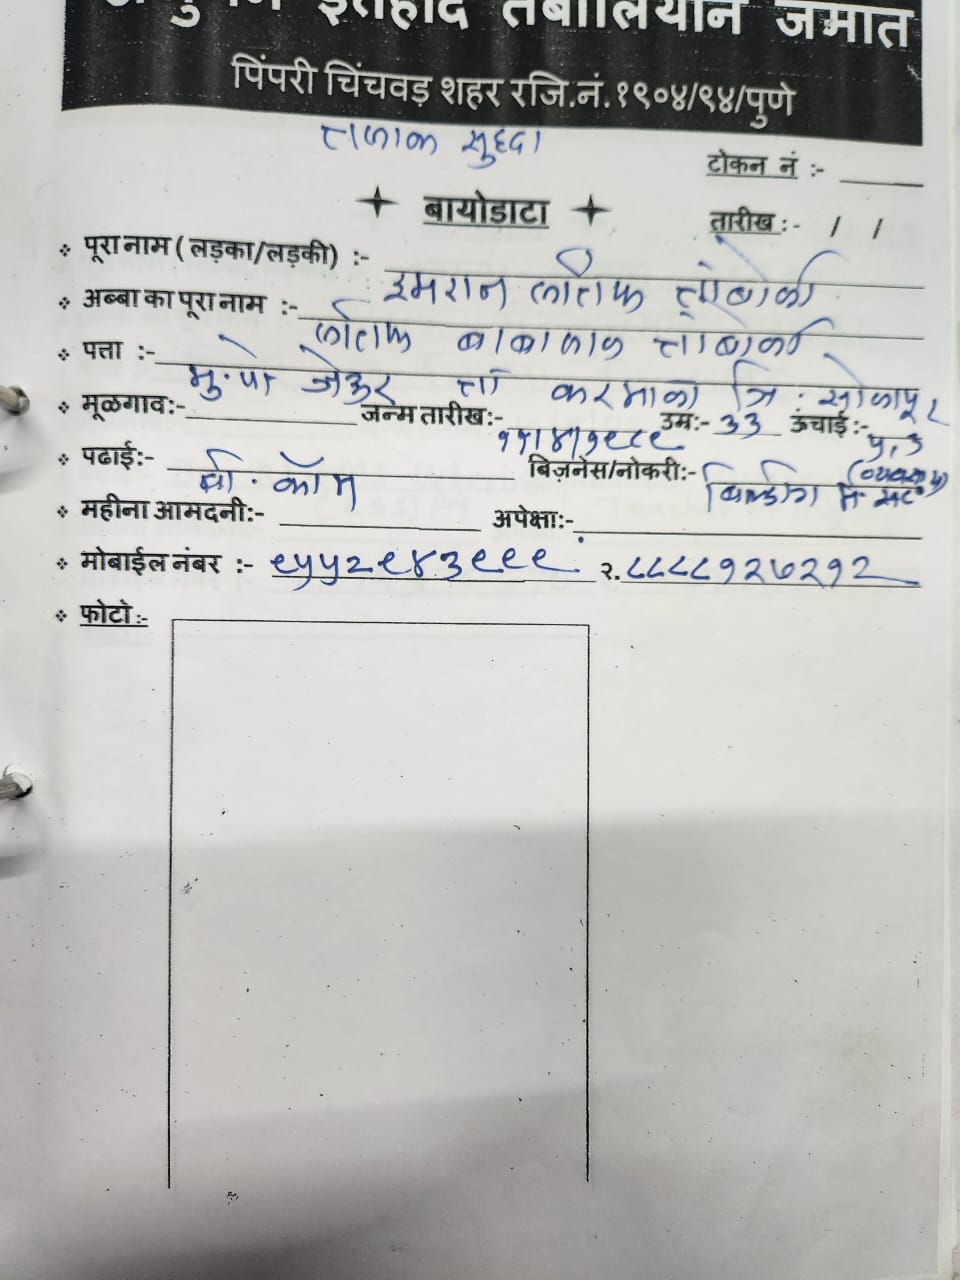 इत्तेहाद तंबोलियान जमात
पिंपरी चिंचवड़ शहर रजि.नं.१९०४/९४/पुणे
तलाक सुद्दा
टोकन नं :- ____
बायोडाटा
तारीख :- / /
पूरा नाम ( लड़का/लड़की) :- इमरान लतिफ तांबोळी
अब्बा का पूरा नाम :- लतिफ बाबालाल तांबोळी
पत्ता :- मु. पो जेऊर ता करमाळा जि. सोलापूर
मूळगाव:- ____ जन्म तारीख:- १५/४/१९८९ उम्र:- ३३ ऊंचाई :- ५.३
पढाई:- बी. कॉम बिज़नेस/नोकरी:- बिल्डींग (व्यवसाय)
महीना आमदनी:- ____ अपेक्षा:-
मोबाईल नंबर :- ९५५२९४३९९९. २. ८८८८१२७२१२
फोटो :-